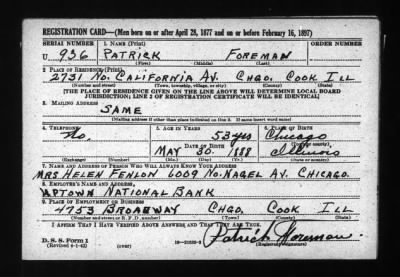 REGISTRATION CARD—(Men born on or after April 28, 1877 and on or before February 16, 1897)
SERIAL NUMBER 1. NAME (Print) ORDER NUMBER
U 936 PATRICK FOREMAN
(First) (Middle) (Last)
2. PLACE OF RESIDENCE (Print)
2731 NO. CALIFORNIA AV. CHGO. COOK ILL
(Number and street) (Town, township, village, or city) (County) (State)
[THE PLACE OF RESIDENCE GIVEN ON THE LINE ABOVE WILL DETERMINE LOCAL BOARD
JURISDICTION; LINE 2 OF REGISTRATION CERTIFICATE WILL BE IDENTICAL]
3. MAILING ADDRESS
SAME
(Mailing address if other than place indicated on line 2. If same insert word same)
4. TELEPHONE 5. AGE IN YEARS 6. PLACE OF BIRTH
No. 53 yrs Chicago
DATE OF BIRTH (Town or county)
MAY 30. 1888 Illinois
(Exchange) (Number) (Mo.) (Day) (Yr.) (State or country)
7. NAME AND ADDRESS OF PERSON WHO WILL ALWAYS KNOW YOUR ADDRESS
MRS HELEN FENLON 6009 NO. NAGEL AV. CHICAGO.
8. EMPLOYER'S NAME AND ADDRESS
UPTOWN NATIONAL BANK
9. PLACE OF EMPLOYMENT OR BUSINESS
4753 BROADWAY CHGO. COOK ILL
(Number and street or R. F. D. number) (Town) (County) (State)
I AFFIRM THAT I HAVE VERIFIED ABOVE ANSWERS AND THAT THEY ARE TRUE.
D. S. S. Form 1
(Revised 4-1-42) (over) Patrick Foreman
(Registrant's signature)